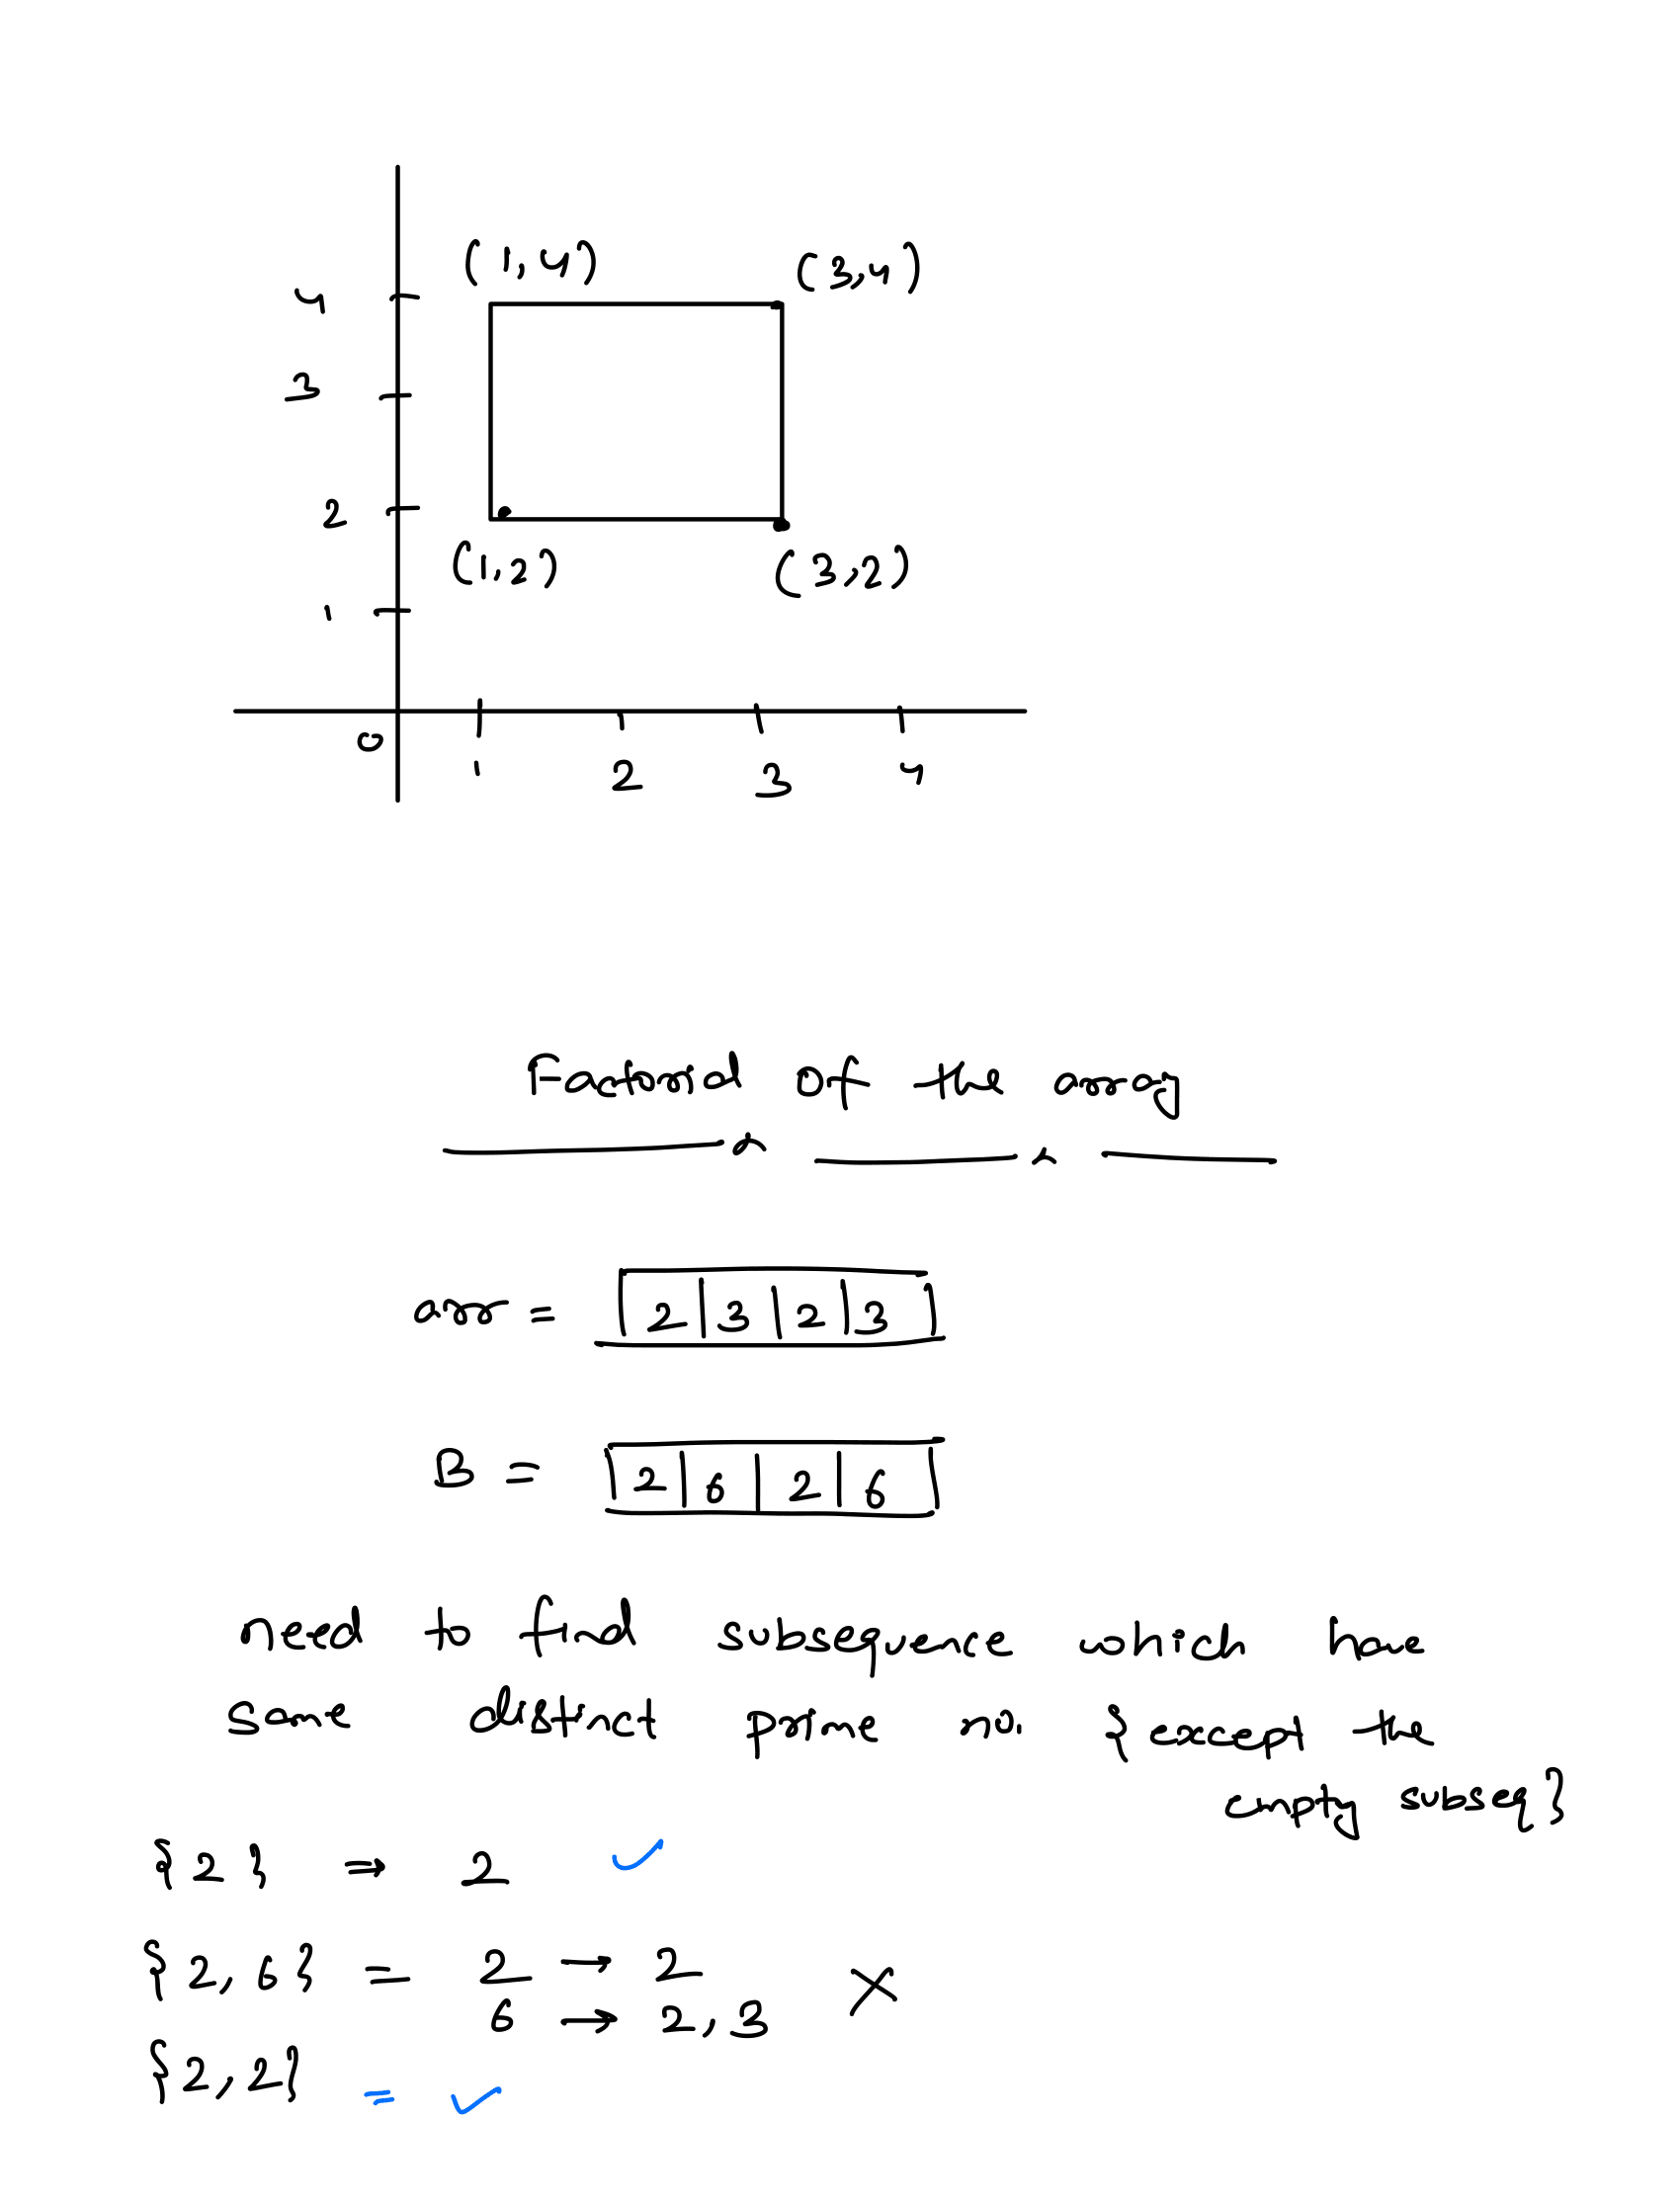 (1,4) (3,4)
4
3
2
(1,2) (3,2)
1
0
1 2 3 4
Factorial of the array
arr = 2 | 3 | 2 | 3
B = 2 | 6 | 2 | 6
need to find subsequence which have
same distinct prime no. {except the
empty subseq}
{2} ⇒ 2 ✓
{2,6} = 2 → 2
6 → 2,3 ✗
{2,2} = ✓